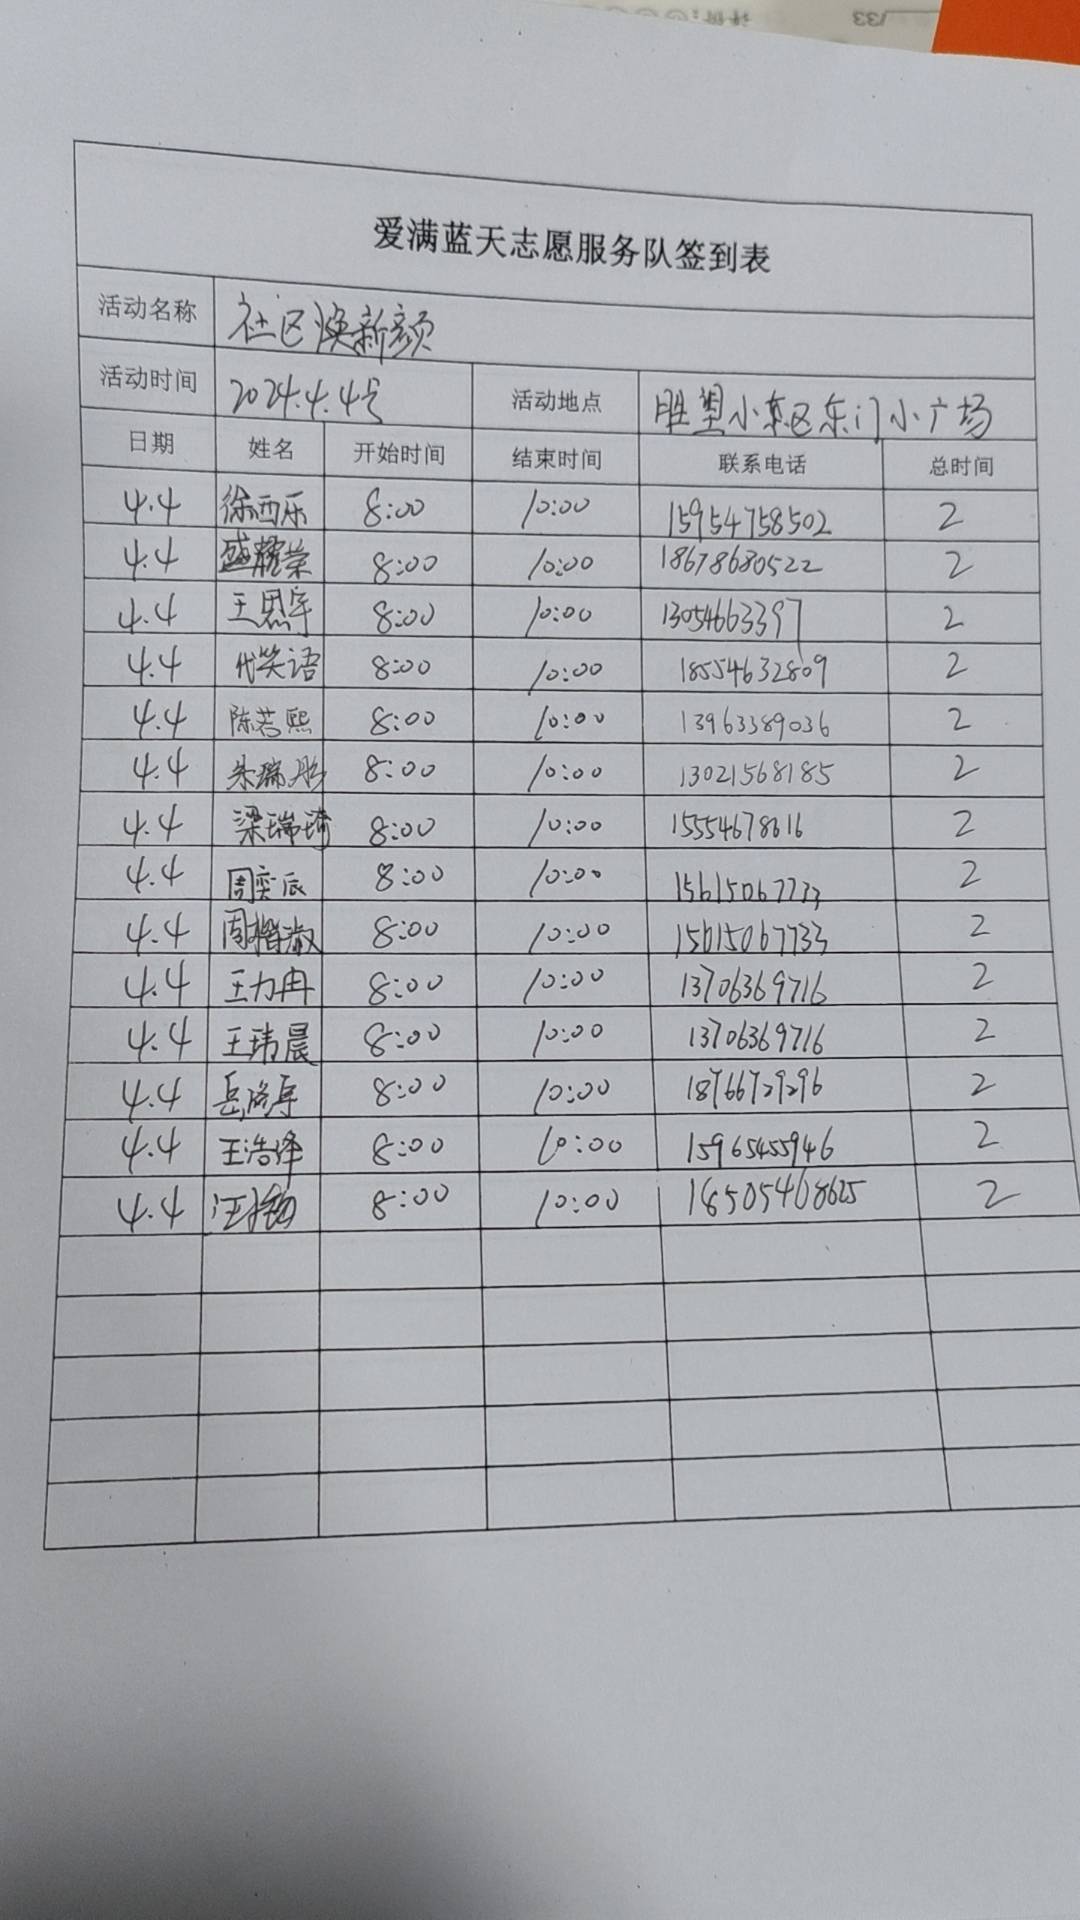 爱满蓝天志愿服务队签到表
活动名称 社区焕新颜
活动时间 2024.4.4号 活动地点 胜望小东区东门小广场
日期 姓名 开始时间 结束时间 联系电话 总时间
4.4 徐西乐 8:00 10:00 15954758502 2
4.4 盛毓荣 8:00 10:00 18678680522 2
4.4 王思宇 8:00 10:00 13054663397 2
4.4 代笑语 8:00 10:00 18554632809 2
4.4 陈若熙 8:00 10:00 13963389036 2
4.4 朱瑞彤 8:00 10:00 13021568185 2
4.4 梁瑞琦 8:00 10:00 15554678616 2
4.4 周奕辰 8:00 10:00 15615067733 2
4.4 周楷淑 8:00 10:00 15615067733 2
4.4 王力冉 8:00 10:00 13706369716 2
4.4 王玮晨 8:00 10:00 13706369716 2
4.4 岳 8:00 10:00 18766729296 2
4.4 王浩泽 8:00 10:00 15965455946 2
4.4 汪 8:00 10:00 18505408625 2